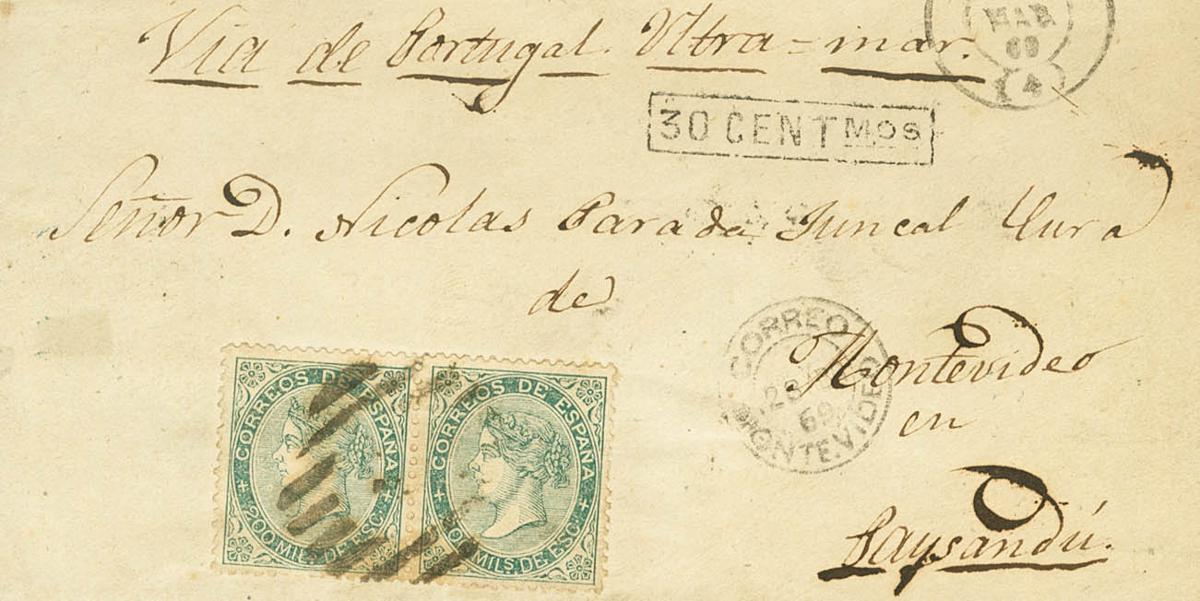 Via de Portugal. Ultra=mar.
MAR
69
(4
30 CENTMOS
Señor D. Nicolas Parada Juncal Cura
de
Montevideo
en
Paysandú.
CORREO
69
MONTEVIDEO
CORREOS DE ESPAÑA
200 MILS DE ESC.
CORREOS DE ESPAÑA
MILS DE ESC.